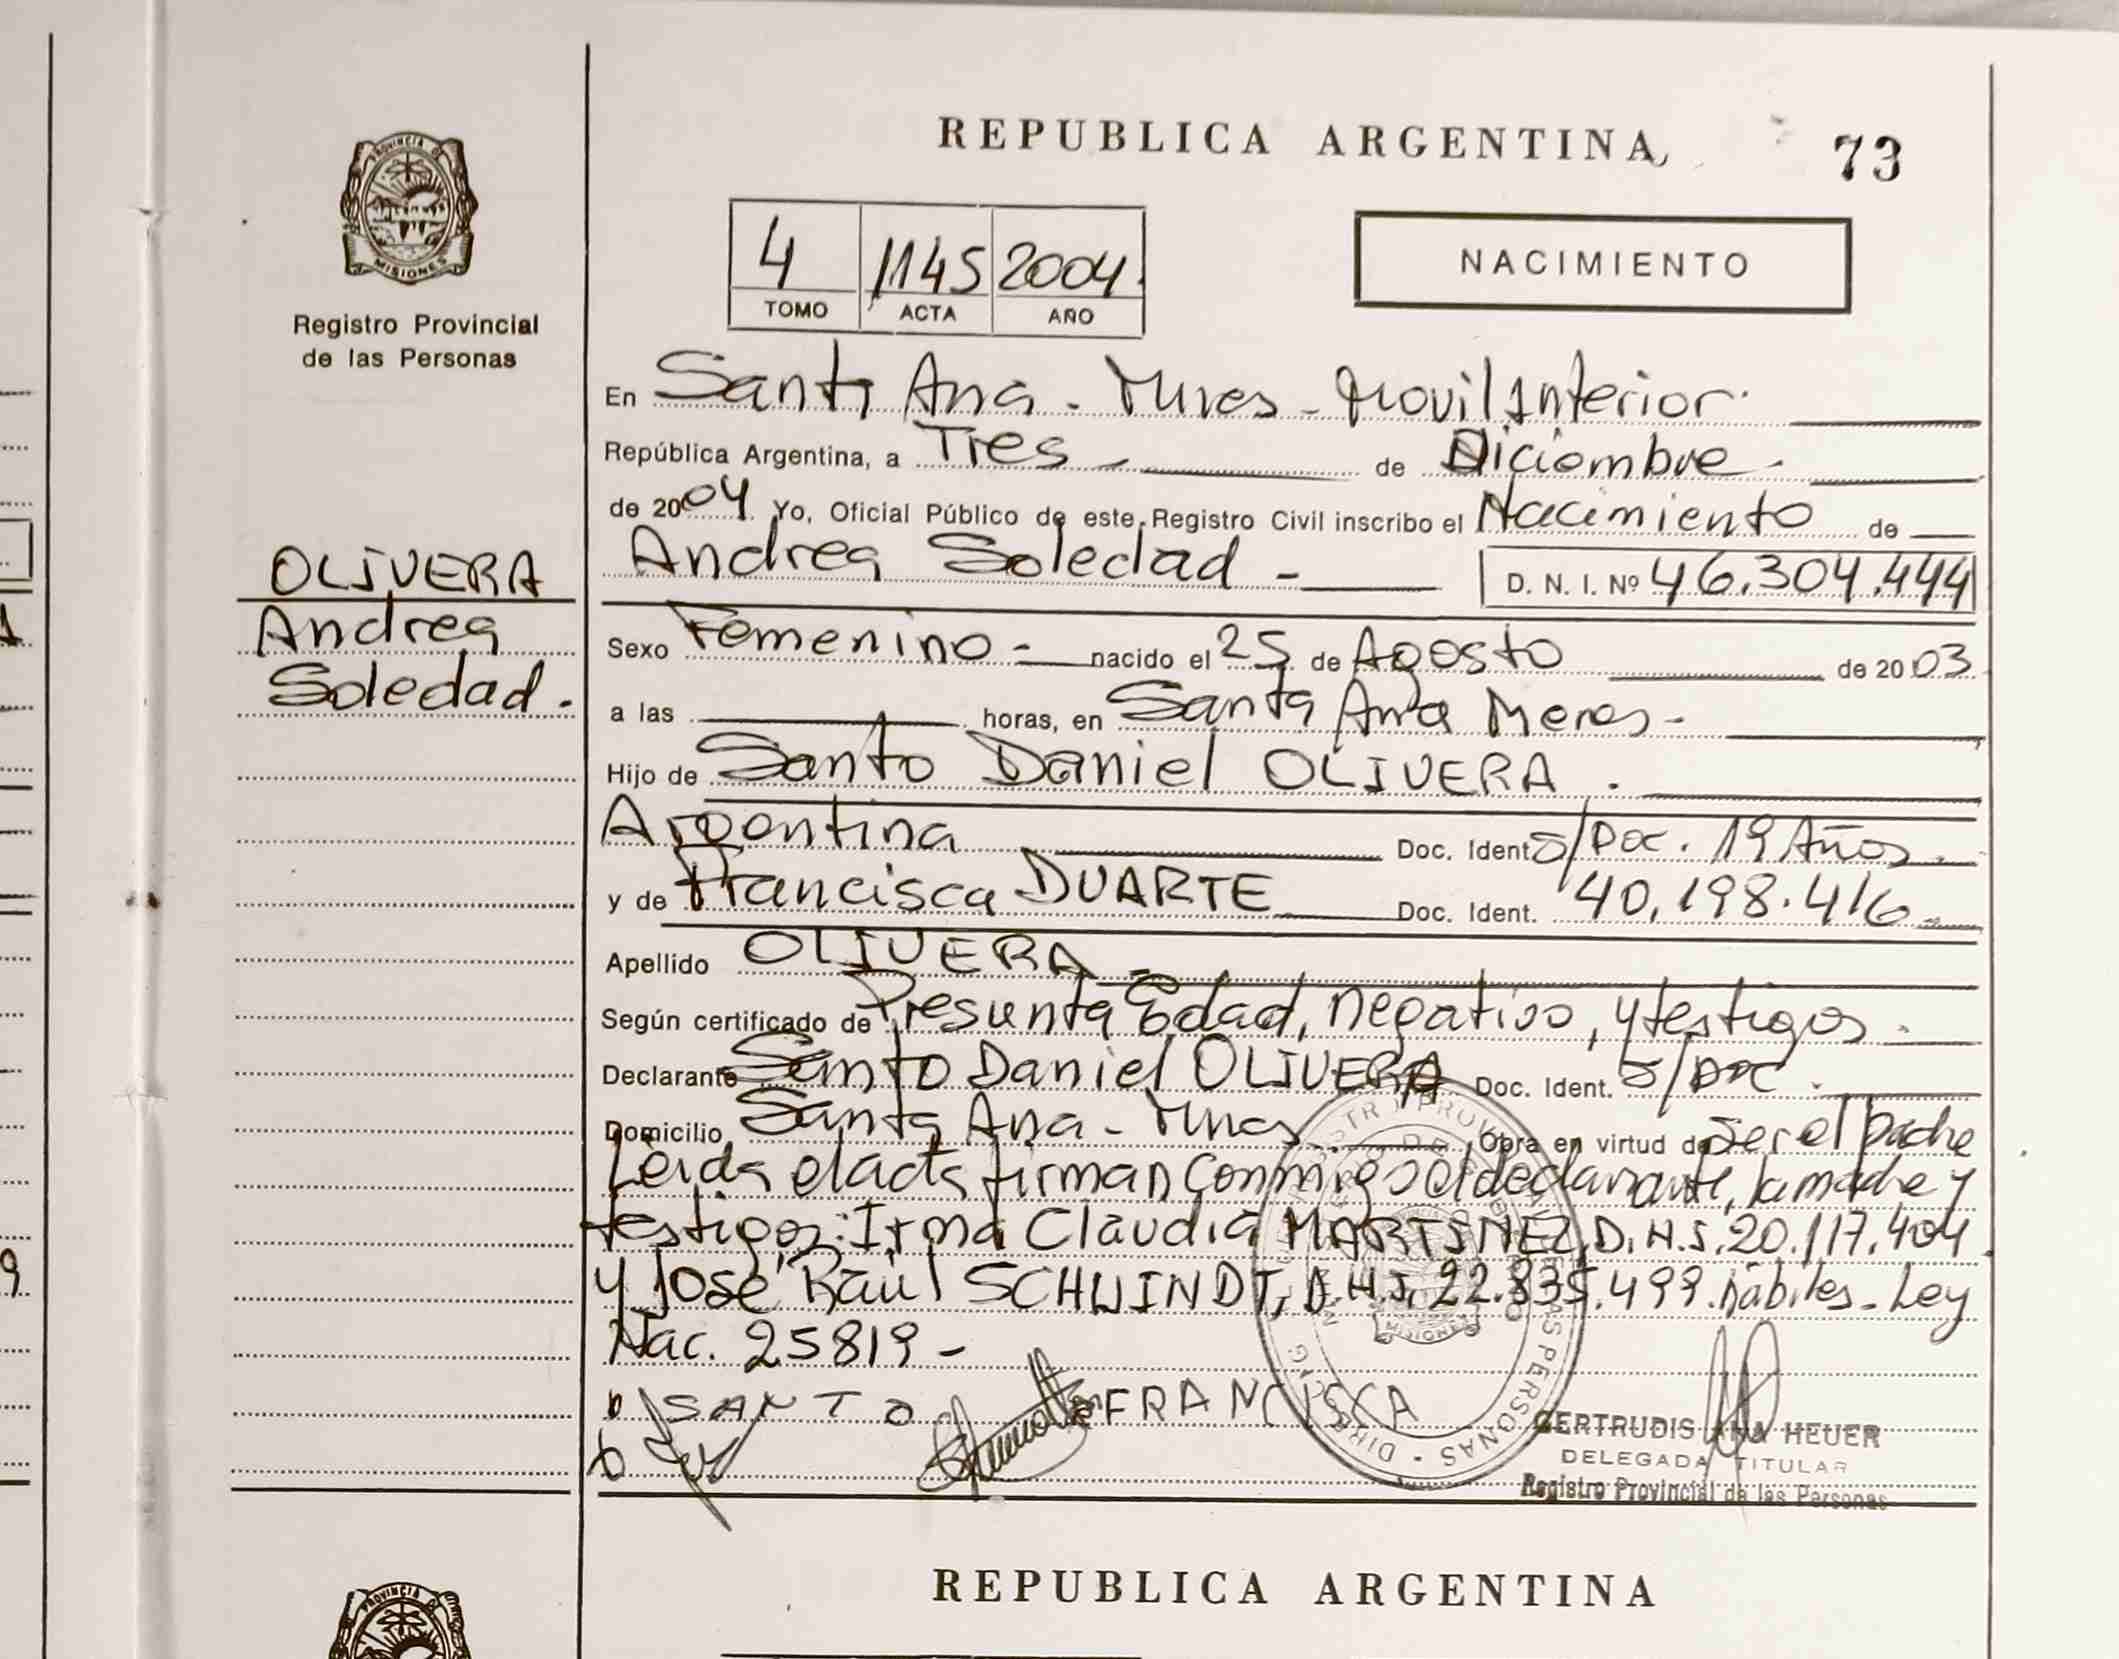 REPUBLICA ARGENTINA
73
PROVINCIA DE
MISIONES
Registro Provincial
de las Personas
4 1145 2004
TOMO ACTA AÑO
NACIMIENTO
En Santa Ana - Mnes - Movil Interior
República Argentina, a Tres - de Diciembre -
de 2004 Yo, Oficial Público de este Registro Civil inscribo el Nacimiento de
Andrea Soledad - D. N. I. Nº 46.304.444
OLIVERA
Andrea
Soledad.
Sexo Femenino - nacido el 25 de Agosto de 2003
a las horas, en Santa Ana Mnes -
Hijo de Santo Daniel OLIVERA.
Argentina Doc. Ident S/Doc. 19 Años.
y de Francisca DUARTE Doc. Ident. 40.198.416
Apellido OLIVERA -
Según certificado de Presunta Edad, negativo, y testigos.
Declarante Santo Daniel OLIVERA Doc. Ident. S/Doc.
Domicilio Santa Ana - Mnes Obra en virtud de Ser el padre
Leida el acta firman conmigo el declarante, la madre y
testigos: Irma Claudia MARTINEZ, D.N.I. 20.117.404
y José Raúl SCHWINDT, D.N.I. 22.835.499. hábiles - Ley
Nac. 25819 -
SANTO FRANCISCA
GERTRUDIS ANA HEUER
DELEGADA TITULAR
Registro Provincial de las Personas
REPUBLICA ARGENTINA
PROVINCIA